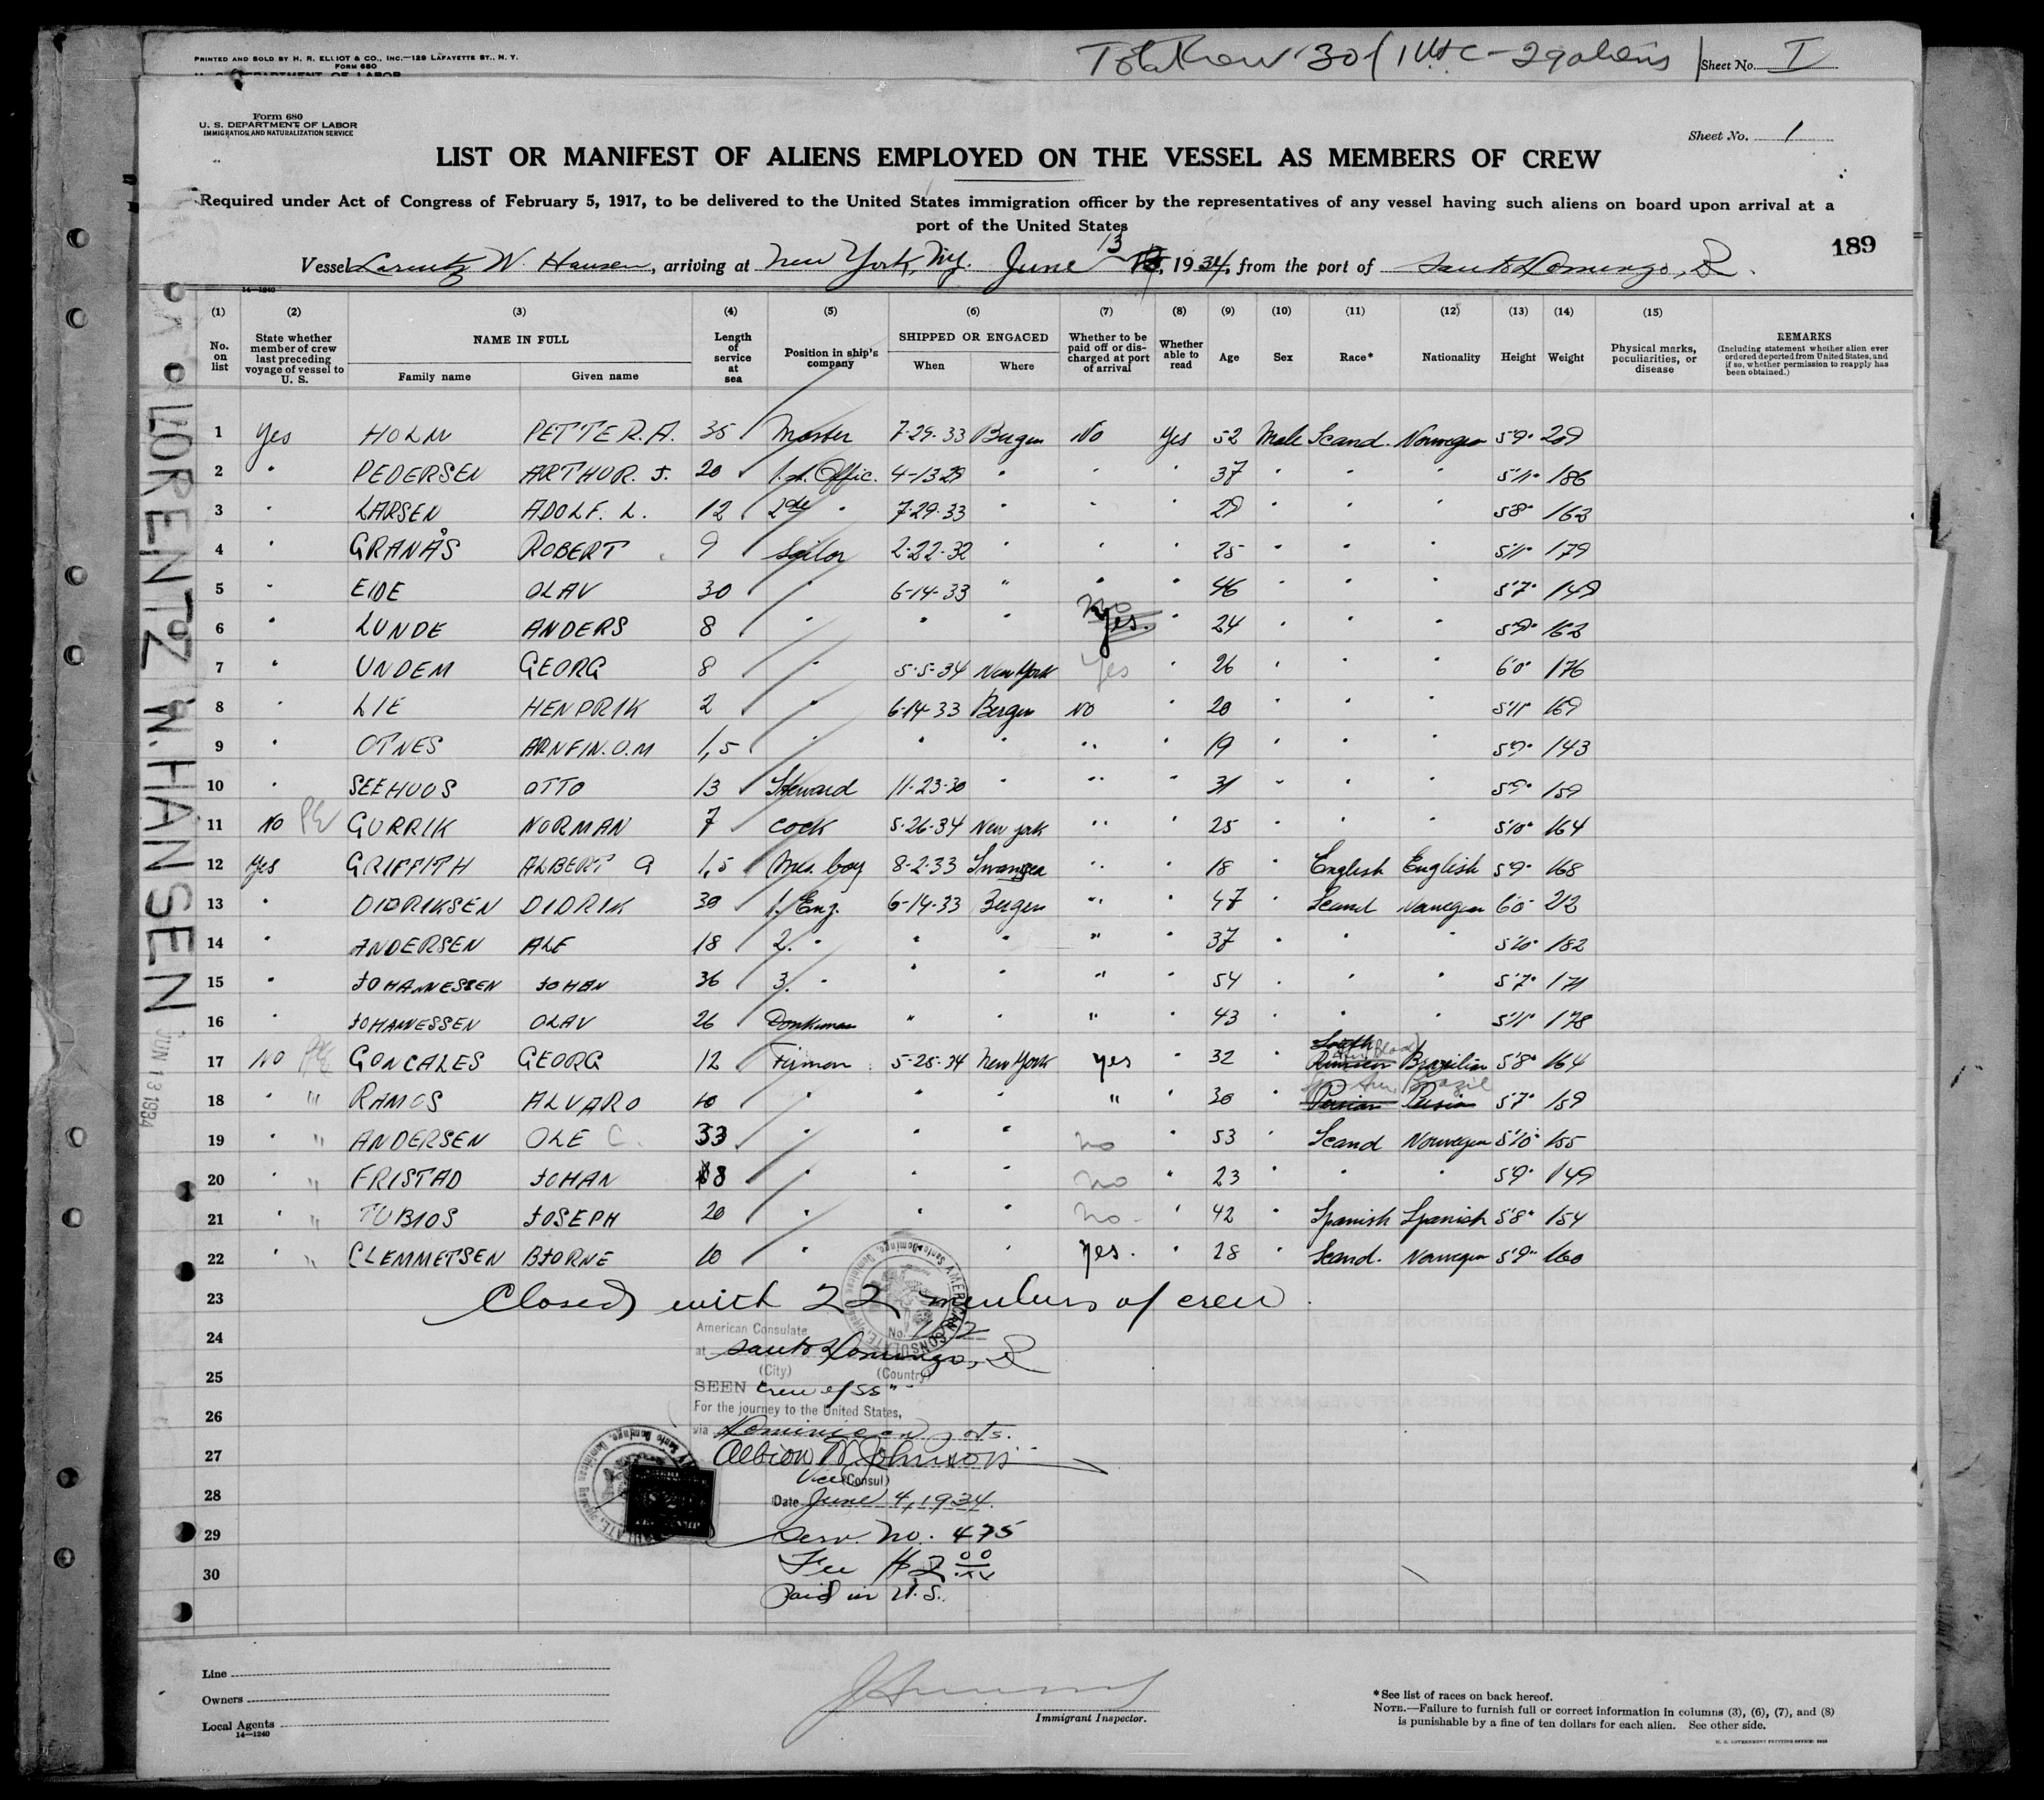 PRINTED AND SOLD BY H. R. ELLIOT & CO., INC.—129 LAFAYETTE ST., N. Y.
FORM 680
U. S. DEPARTMENT OF LABOR
30 / 1 29 aliens
Sheet No. I
Form 680
U. S. DEPARTMENT OF LABOR
IMMIGRATION AND NATURALIZATION SERVICE
Sheet No. 1
LIST OR MANIFEST OF ALIENS EMPLOYED ON THE VESSEL AS MEMBERS OF CREW
Required under Act of Congress of February 5, 1917, to be delivered to the United States immigration officer by the representatives of any vessel having such aliens on board upon arrival at a
port of the United States
189
Vessel Lorentz W. Hansen, arriving at New York, N.Y. June 13, 1934, from the port of Santo Domingo, D R.
14—1240
(1) (2) (3) (4) (5) (6) (7) (8) (9) (10) (11) (12) (13) (14) (15)
No. on list | State whether member of crew last preceding voyage of vessel to U. S. | NAME IN FULL | Family name | Given name | Length of service at sea | Position in ship's company | SHIPPED OR ENGAGED | When | Where | Whether to be paid off or discharged at port of arrival | Whether able to read | Age | Sex | Race* | Nationality | Height | Weight | Physical marks, peculiarities, or disease | REMARKS (Including statement whether alien ever ordered deported from United States, and if so, whether permission to reapply has been obtained.)
1 Yes HOLM PETTER. A. 35 Master 7-29-33 Bergen No Yes 52 Male Scand. Norwegian 5'9" 209
2 " PEDERSEN ARTHUR. J. 20 1.st. Offic. 4-13-29 " " " 37 " " " 5'11" 186
3 " LARSEN ADOLF. L. 12 2nd " 7-29-33 " " " 29 " " " 5'8" 163
4 " GRANÅS ROBERT 9 Sailor 2-22-32 " " " 25 " " " 5'11" 179
5 " EIDE OLAV 30 " 6-14-33 " " " 46 " " " 5'7" 149
6 " LUNDE ANDERS 8 " " " No Yes. " 24 " " " 5'9" 163
7 " UNDEM GEORG 8 " 5-5-34 New York Yes " 26 " " " 6'0" 176
8 " LIE HENDRIK 2 " 6-14-33 Bergen No " 20 " " " 5'11" 169
9 " OTNES ARNFIN. O. M 1,5 " " " " " 19 " " " 5'9" 143
10 " SEEHUUS OTTO 13 Steward 11-23-30 " " " 31 " " " 5'9" 159
11 No GURRIK NORMAN 7 Cock 5-26-34 New York " " 25 " " " 5'10" 164
12 Yes GRIFFITH ALBERT G 1,5 Mes. boy 8-2-33 Swansea " " 18 " English English 5'9" 168
13 " DIDRIKSEN DIDRIK 30 1. Eng. 6-14-33 Bergen " " 47 " Scand Norwegian 6'0" 212
14 " ANDERSEN ALF 18 2. " " " " " 37 " " " 5'10" 182
15 " JOHANNESSEN JOHAN 36 3. " " " " " 54 " " " 5'7" 171
16 " JOHANNESSEN OLAV 26 Donkiman " " " " 43 " " " 5'11" 178
17 No GONCALES GEORG 12 Firman 5-25-34 New York yes " 32 " South American Brazilian 5'8" 164
18 " " RAMOS ALVARO 10 " " " " " 30 " So. Am. Brazil Persian Persian 5'7" 159
19 " " ANDERSEN OLE C. 33 " " " no " 53 " Scand Norwegian 5'10" 155
20 " " FRISTAD JOHAN 8 " " " no " 23 " " " 5'9" 149
21 " " TUBIOS JOSEPH 20 " " " no. " 42 " Spanish Spanish 5'8" 154
22 " " CLEMMETSEN BJORNE 10 " " yes. " 28 " Scand. Norwegian 5'9" 160
23 Closed with 22 members of crew.
24 American Consulate No. 132
at Santo Domingo, D R
25 (City) (Country)
SEEN crew of SS
26 For the journey to the United States,
via Dominican ports.
27 Albion W. Johnson
Vice (Consul)
28 Date June 4, 1934.
29 Serv. No. 475
30 Fee $2.00
Paid in U. S.
AMERICAN CONSULATE, Santo Domingo, Dominican Republic
LORENTZ W. HANSEN
JUN 13 1934
Line
Owners
Local Agents
14—1240
Immigrant Inspector.
*See list of races on back hereof.
NOTE.—Failure to furnish full or correct information in columns (3), (6), (7), and (8)
is punishable by a fine of ten dollars for each alien. See other side.
U. S. GOVERNMENT PRINTING OFFICE: 1933